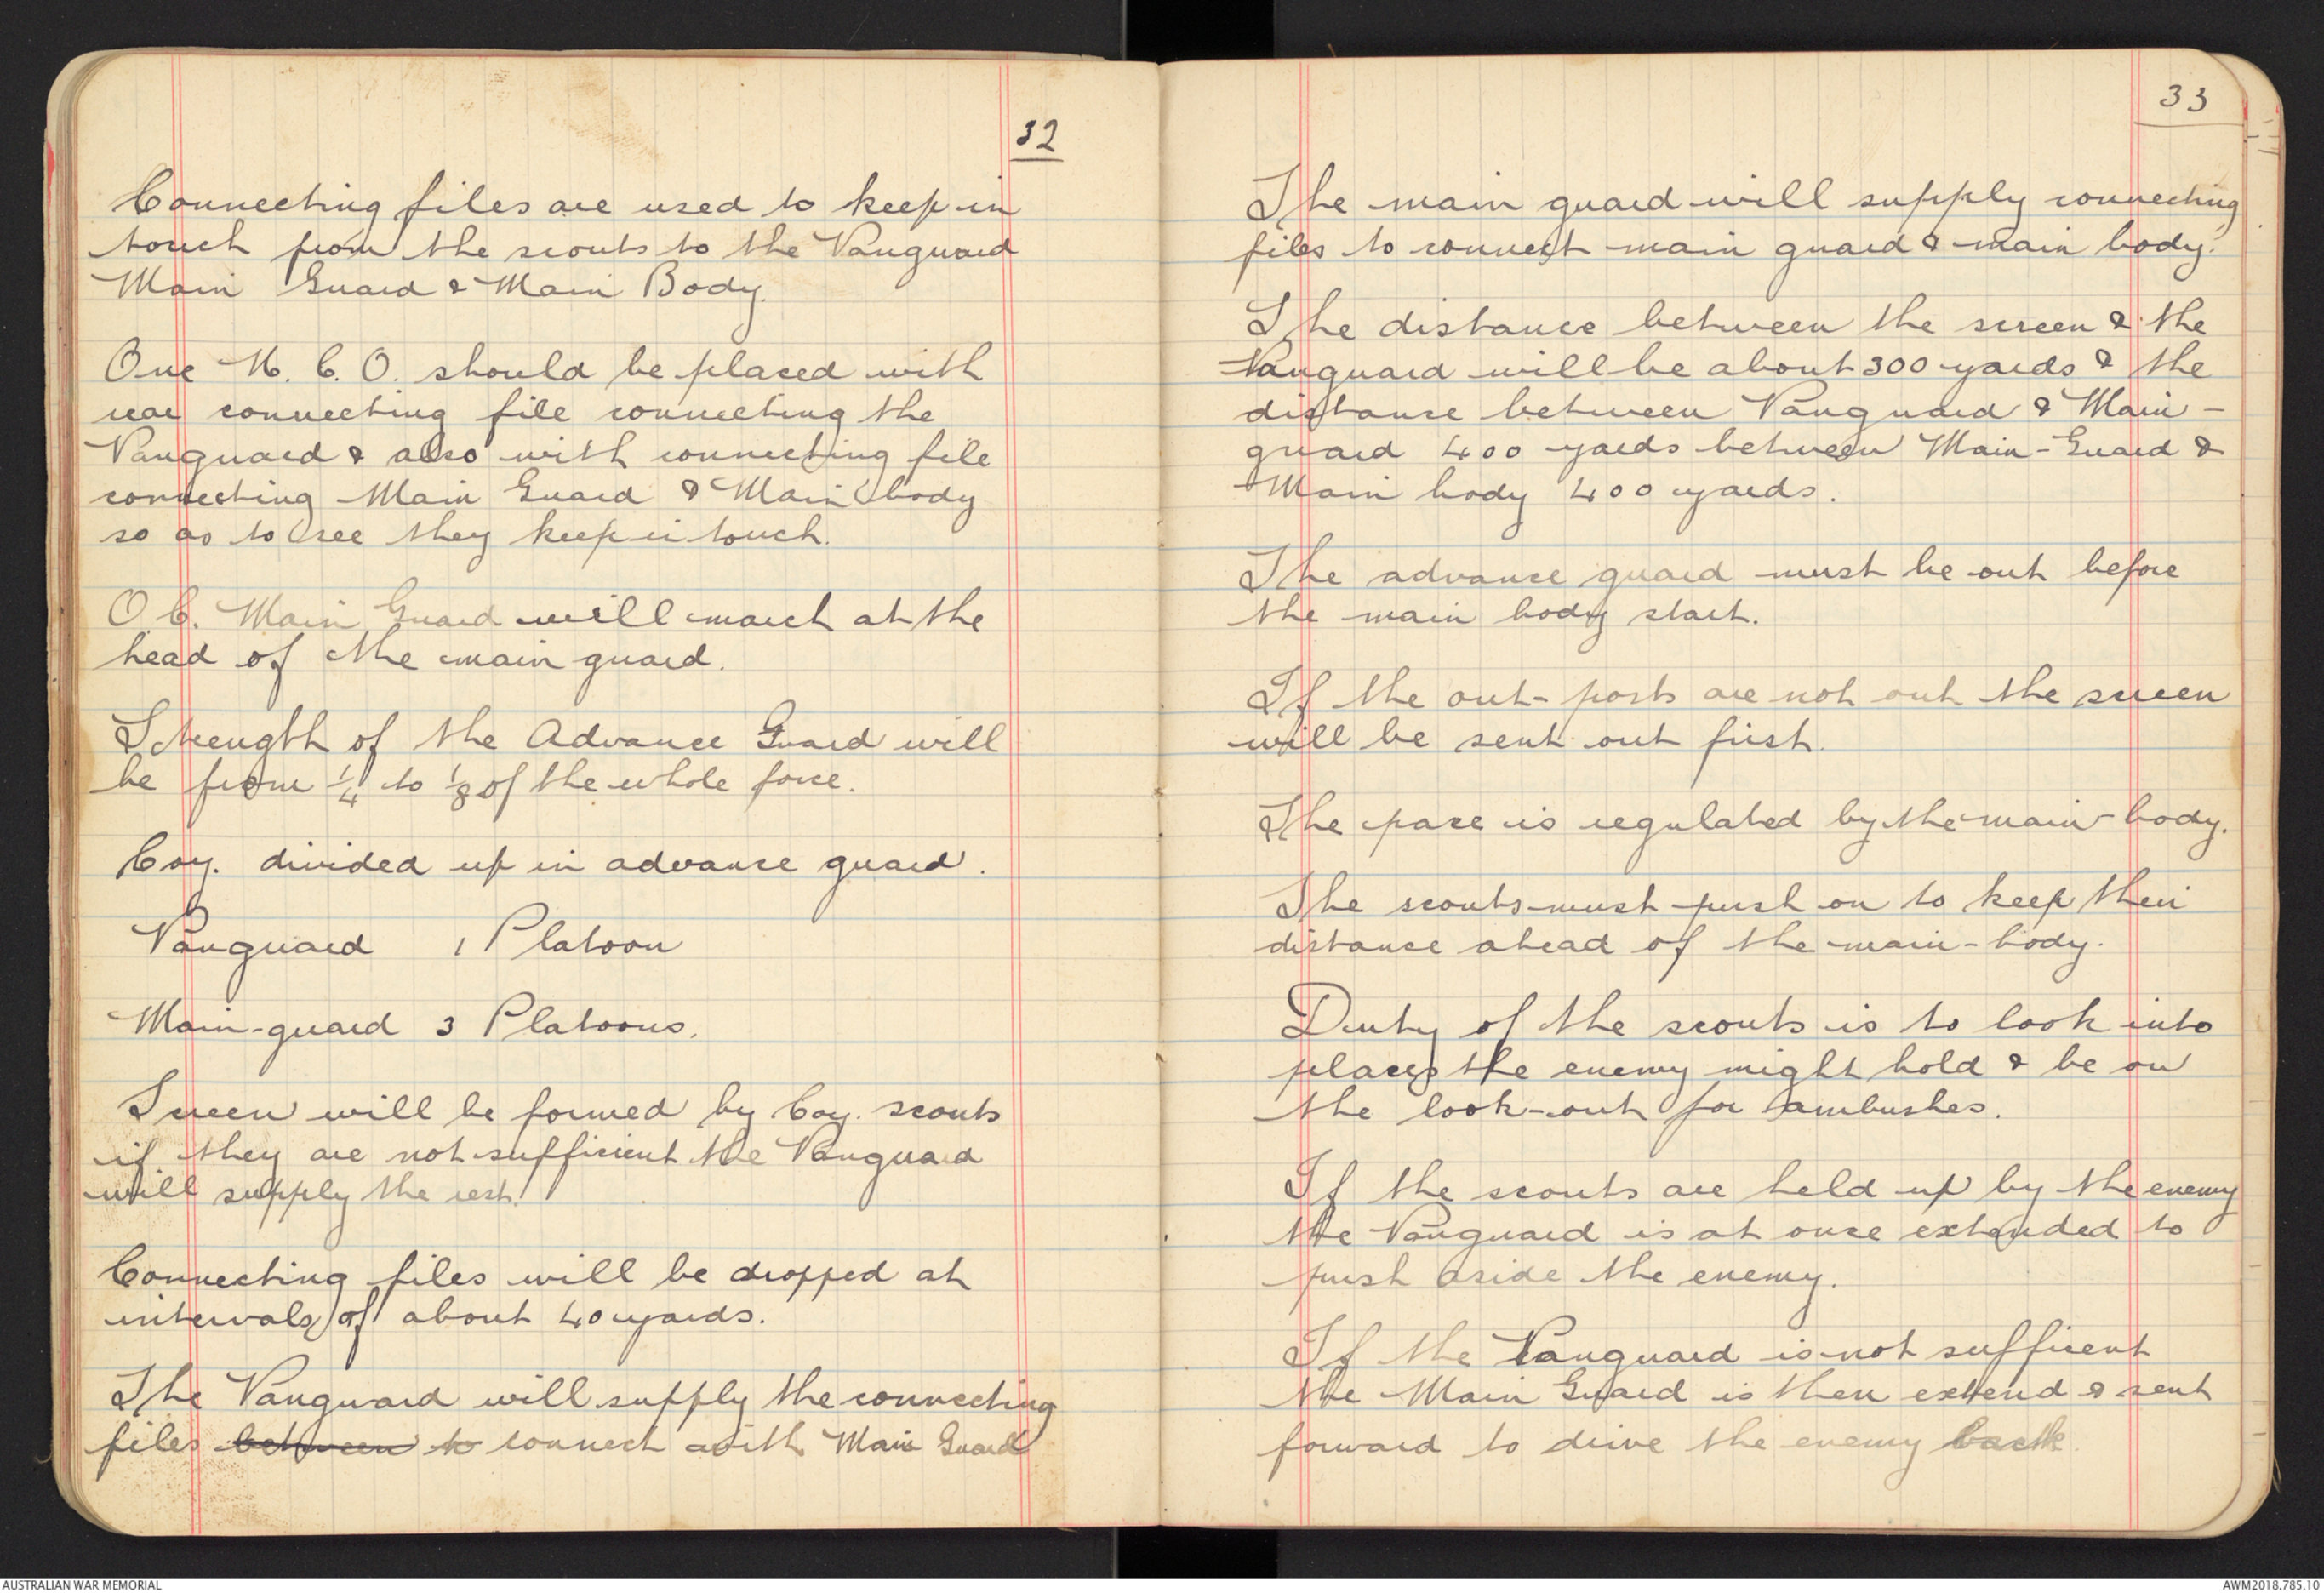 32
Connecting files are used to keep in
touch from the scouts to the Vanguard
Main Guard & Main Body.
One N.C.O. should be placed with
rear connecting file connecting the
Vanguard & also with connecting file
connecting Main Guard & Main body
so as to see they keep in touch.
O.C. Main Guard will march at the
head of the main guard.
Strength of the Advance Guard will
be from 1/4 to 1/8 of the whole force.
Coy. divided up in advance guard.
Vanguard 1 Platoon
Main-guard 3 Platoons.
Screen will be formed by Coy. scouts
if they are not sufficient the Vanguard
will supply the rest.
Connecting files will be dropped at
intervals of about 40 yards.
The Vanguard will supply the connecting
files between to connect with Main Guard
33
The main guard will supply connecting
files to connect main guard & main body.
The distance between the screen & the
Vanguard will be about 300 yards & the
distance between Vanguard & Main-
guard 400 yards between Main-Guard &
Main body 400 yards.
The advance guard must be out before
the main body start.
If the out-posts are not out the screen
will be sent out first.
The pace is regulated by the main-body.
The scouts must push on to keep their
distance ahead of the main-body.
Duty of the scouts is to look into
places the enemy might hold & be on
the look-out for ambushes.
If the scouts are held up by the enemy
the Vanguard is at once extended to
push aside the enemy.
If the Vanguard is not sufficent
the Main Guard is then extend & sent
forward to drive the enemy back.
AUSTRALIAN WAR MEMORIAL
AWM2018.785.10